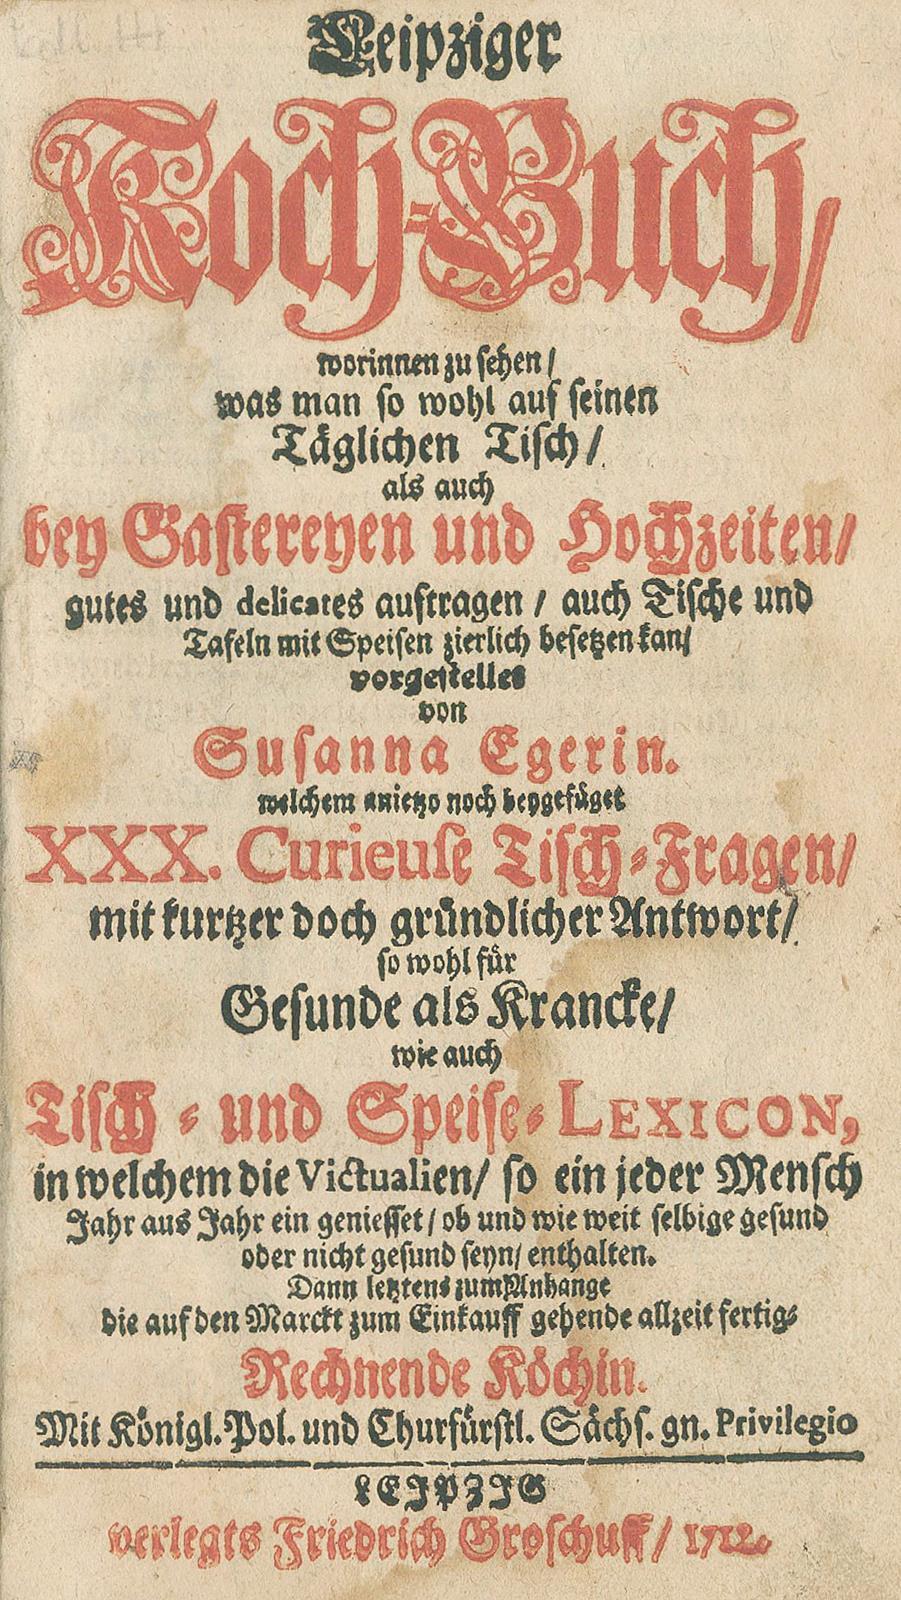 Leipziger
Koch-Buch/
worinnen zu sehen/
was man so wohl auf seinen
Täglichen Tisch/
als auch
bey Gastereyen und Hochzeiten/
gutes und delicates auftragen / auch Tische und
Tafeln mit Speisen zierlich besetzen kan/
vorgestellet
von
Susanna Egerin.
welchem anietzo noch beygefüget
XXX. Curieuse Tisch-Fragen/
mit kurtzer doch gründlicher Antwort/
so wohl für
Gesunde als Krancke/
wie auch
Tisch- und Speise-LEXICON,
in welchem die Victualien/ so ein jeder Mensch
Jahr aus Jahr ein geniesset/ ob und wie weit selbige gesund
oder nicht gesund seyn/ enthalten.
Dann letztens zum Anhange
die auf den Marckt zum Einkauff gehende allzeit fertig-
Rechnende Köchin.
Mit Königl. Pol. und Churfürstl. Sächs. gn. Privilegio
LEIPZIG
verlegts Friedrich Groschuff/ 1712.